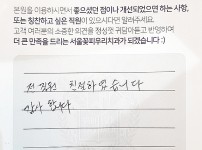 본원을 이용하시면서 좋으셨던 점이나 개선되었으면 하는 사항,
또는 칭찬하고 싶은 직원이 있으시다면 알려주세요.
고객 여러분의 소중한 의견을 정성껏 귀담아듣고 반영하여
더 큰 만족을 드리는 서울꽃피우리치과가 되겠습니다 :)
전 직원 친절하였습니다
감사합니다